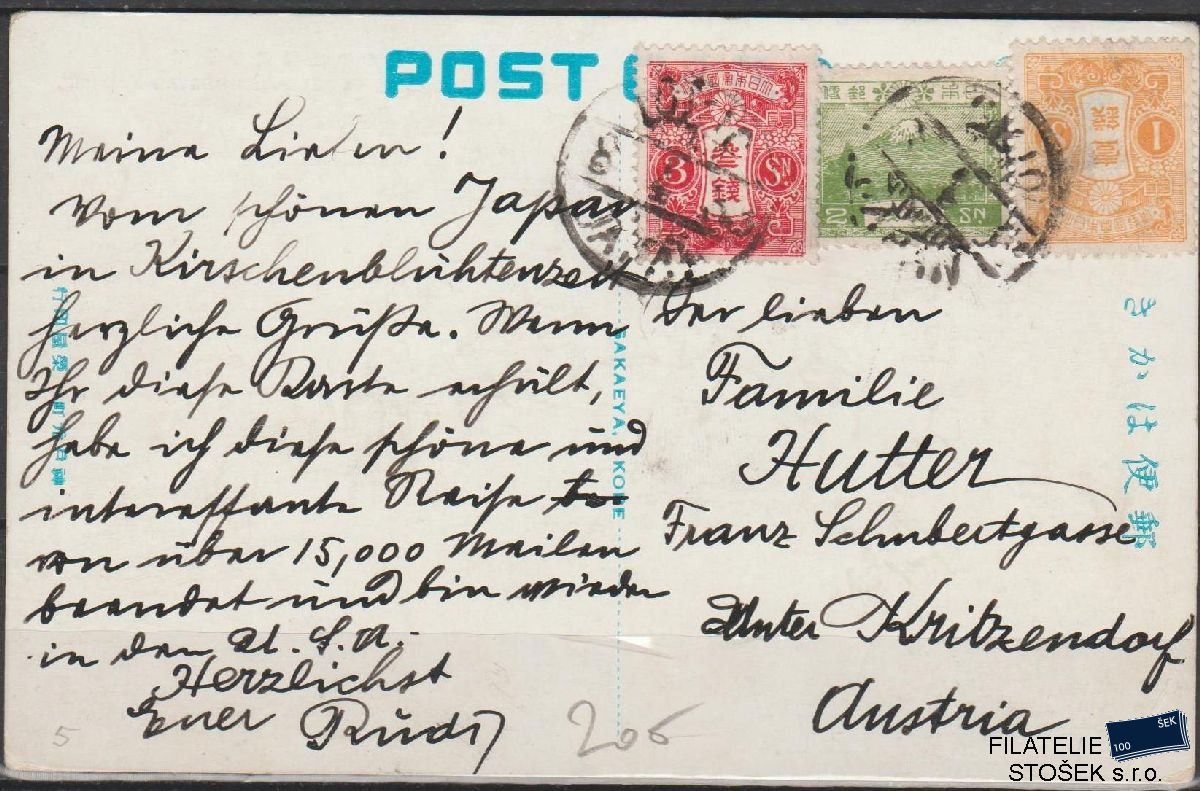 POST
Meine Lieben!
Vom schönen Japan
in Kirschenblühtenzeit
herzliche Grüße. Wenn
Ihr diese Karte erhält,
habe ich diese schöne und
interessante Reise
von über 15,000 Meilen
beendet und bin wieder
in den U. S. A.
Herzlichst
Euer Rudi
Der lieben
Familie
Hutter
Franz Schubertgasse
Unter Kritzendorf
Austria
SAKAEYA, KOBE
きかは便郵
3 参錢 SN
SN
1 壹錢
5
206
FILATELIE
STOŠEK s.r.o.
100 ŠEK